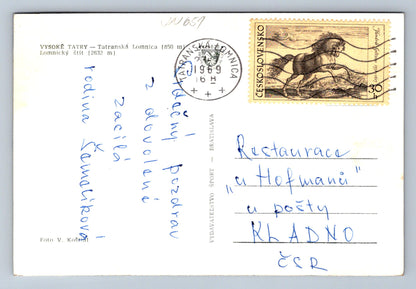 VYSOKÉ TATRY — Tatranská Lomnica (850 m)
Lomnický štít (2632 m)
Srdečný pozdrav
z dovolené
zasílá
rodina
Foto V.
VYDAVATEĽSTVO ŠPORT — BRATISLAVA
TATRANSKÁ LOMNICA
1969
ČESKOSLOVENSKO
30
Restaurace
„u Hofmanů"
u pošty
KLADNO
ČSR